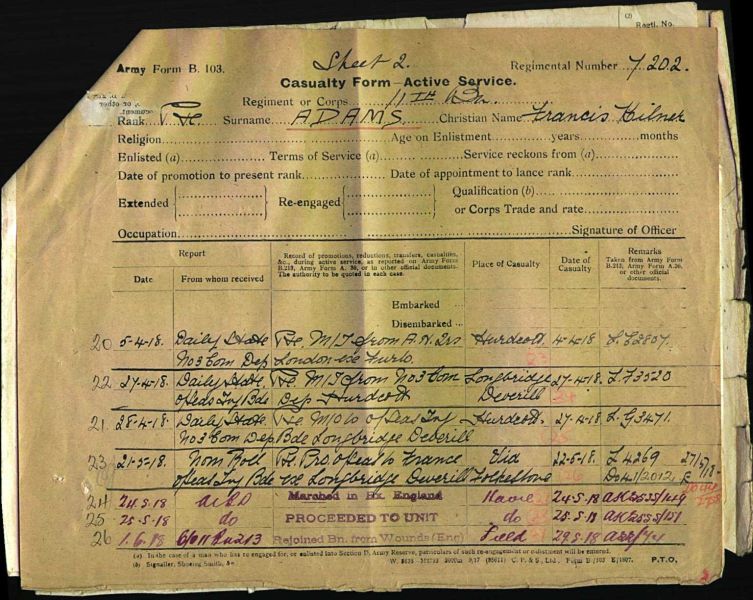 (2)
Regtl. No.
Army Form B. 103.
Sheet 2.
Regimental Number 7202.
Casualty Form—Active Service.
Regiment or Corps 11TH
Rank Pte Surname ADAMS Christian Name Francis Hilner
Religion Age on Enlistment years months
Enlisted (a) Terms of Service (a) Service reckons from (a)
Date of promotion to present rank Date of appointment to lance rank
Extended Re-engaged Qualification (b)
or Corps Trade and rate
Occupation Signature of Officer
Report
Date From whom received
Record of promotions, reductions, transfers, casualties, &c., during active service, as reported on Army Form B.213, Army Form A. 36, or in other official documents. The authority to be quoted in each case.
Place of Casualty
Date of Casualty
Remarks
Taken from Army Form B.213, Army Form A.36, or other official documents.
Embarked
Disembarked
20 5-4-18. Daily State Pte M/I from A.H.Qrs Hurdcott 4-4-18 L.E2807.
No 3 Com Dep London ex Furlo.
22 27-4-18. Daily State. Pte M/I from No 3 Com Longbridge 27-4-18. L.F3520
O/seas Trg Bde Dep Hurdcott Deverill
21. 28-4-18. Daily State. Pte M/O to O/seas Trg Hurdcott. 27-4-18 L.G3471.
No 3 Com Dep Bde Longbridge Deverill
23 21-5-18. Nom Roll Pte. Pro O/seas to France Via 22-5-18. L.4269
O/seas Trg Bde ex Longbridge Deverill Folkestone
24 24.5.18 Marched in Ex. England Havre 24-5-18
25 25-5-18 do PROCEEDED TO UNIT do 25.5.18
26 1.6.18 Rejoined Bn. from Wounds (Enc) Field 29.5.18
(a) In the case of a man who has re-engaged for, or enlisted into Section D. Army Reserve, particulars of such re-engagement or enlistment will be entered.
(b) Signaller, Shoeing Smith, &c.
P.T.O.